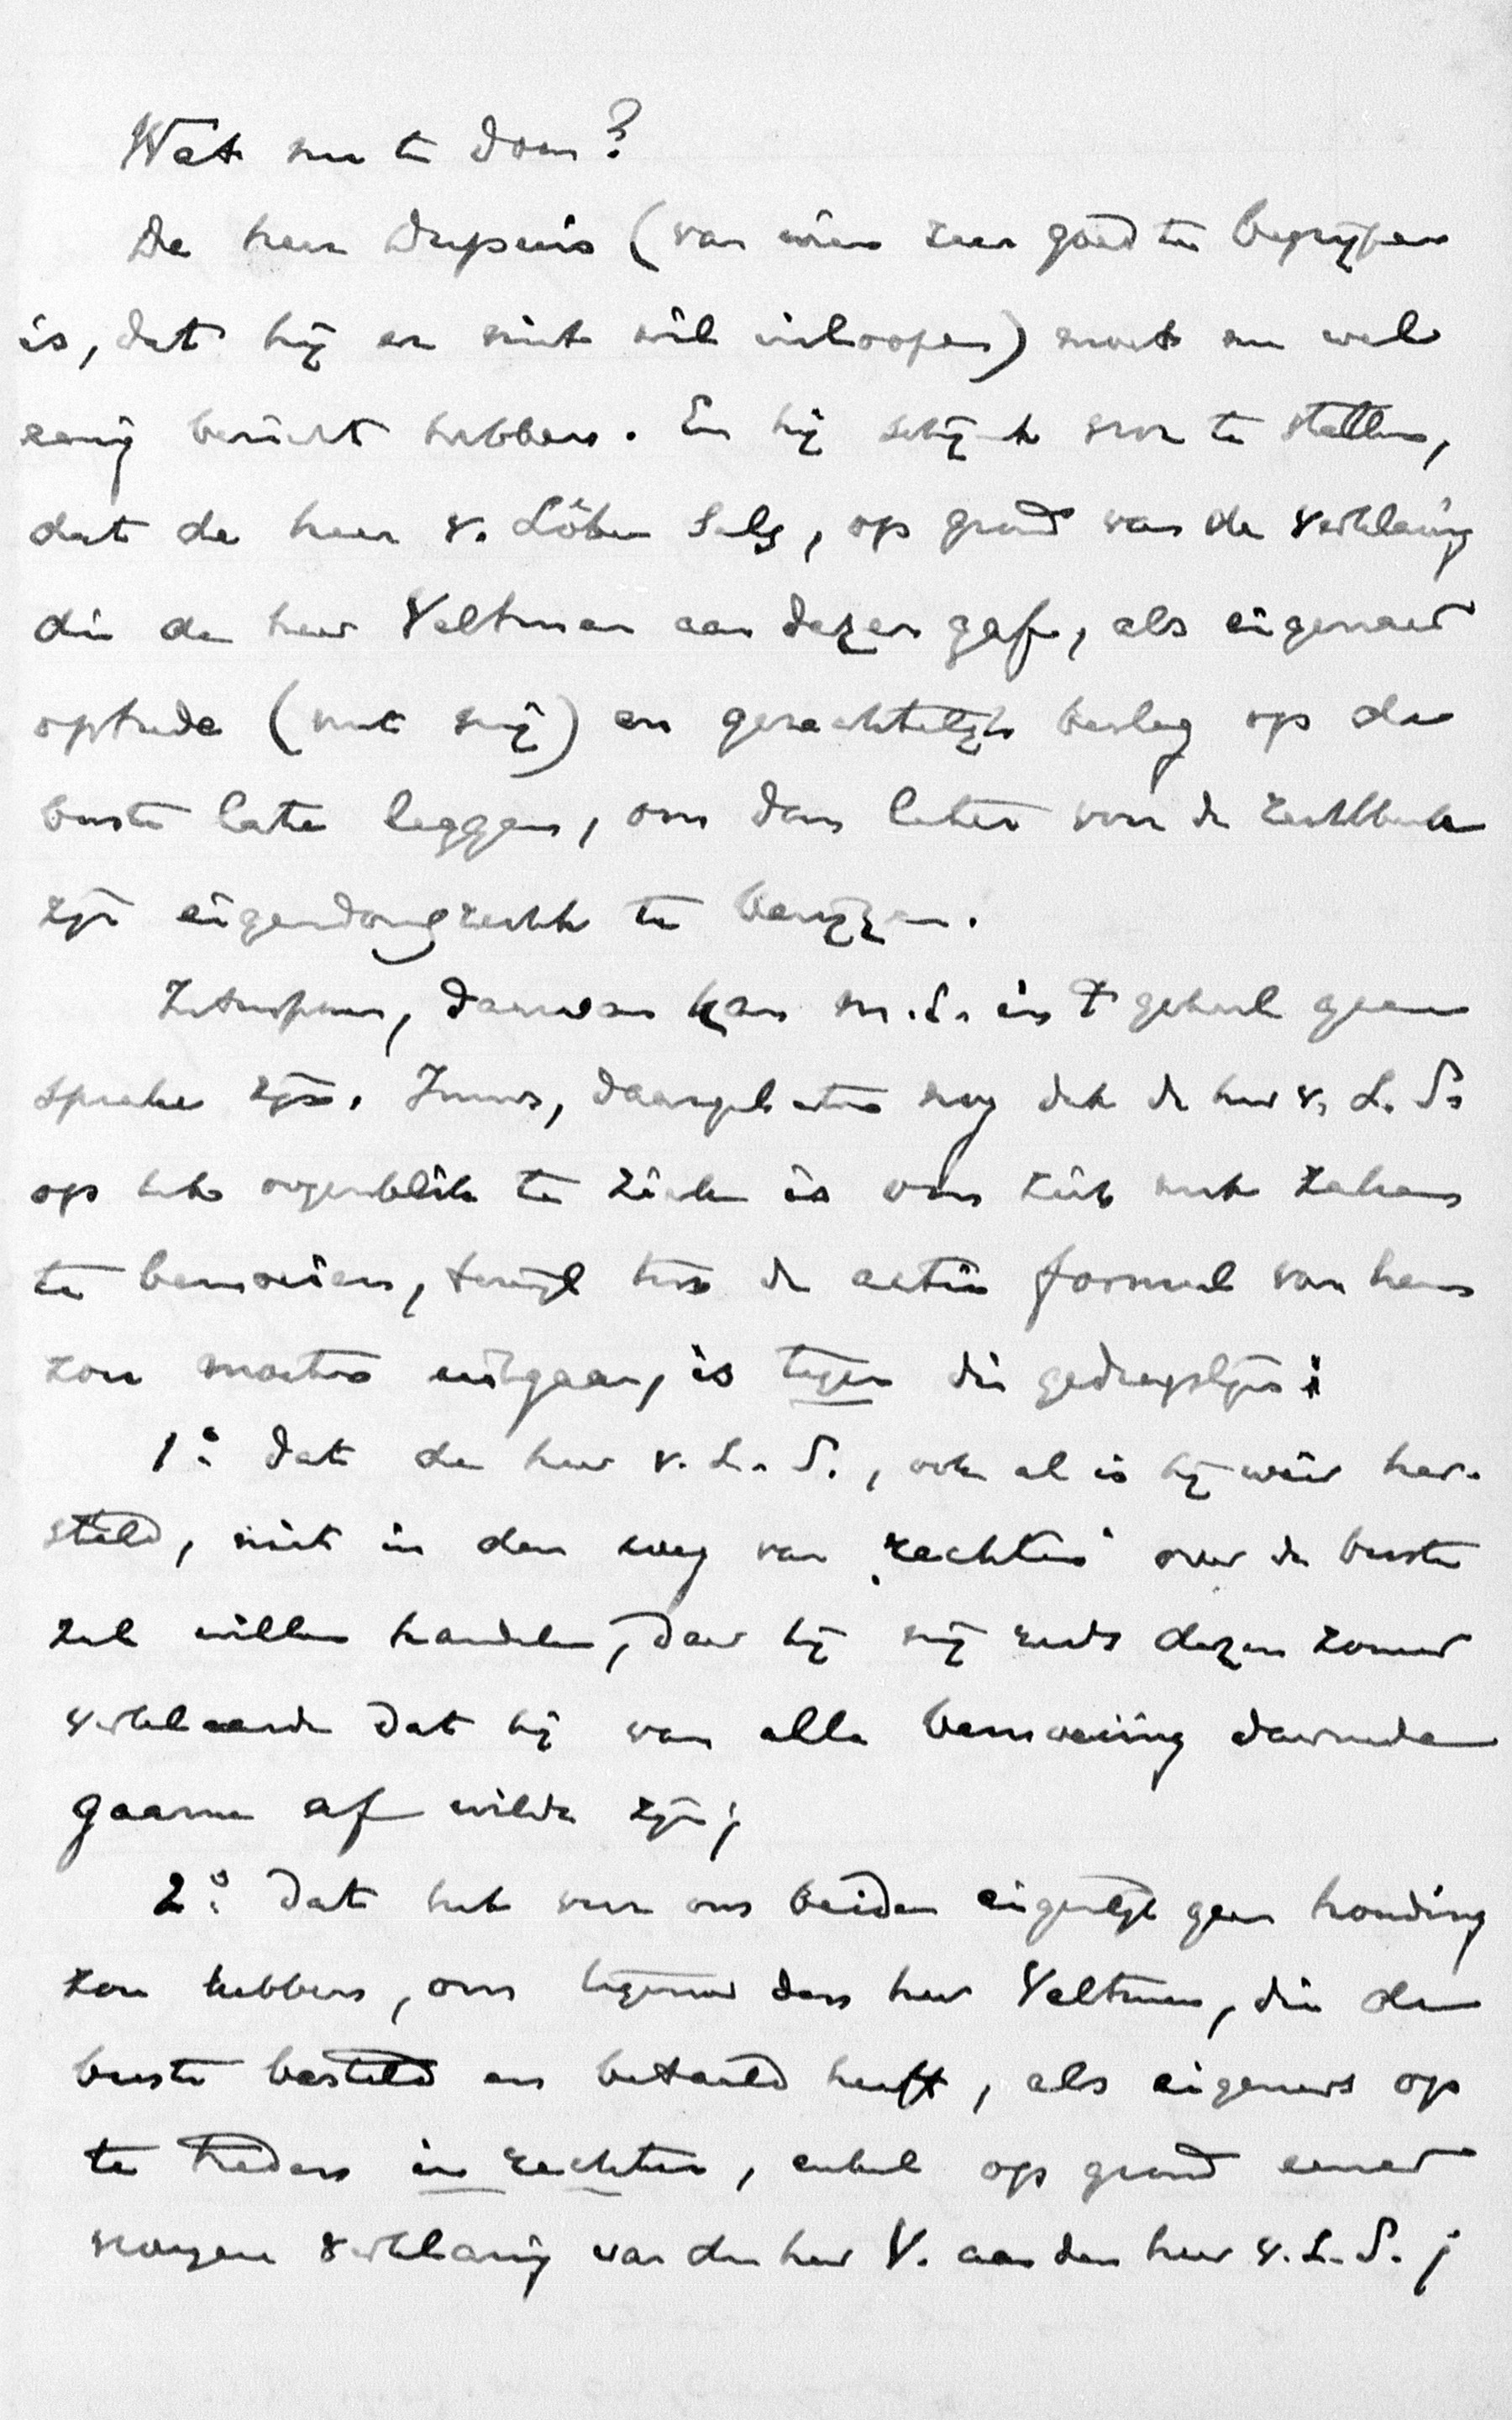 Wat nu te doen?
De heer Dupuis (van wien zeer goed te begrijpen
is, dat hij er niet wil inloopen) moet nu wel
eenig bericht hebben. En hij schijnt voor te stellen,
dat de heer v. Löben Sels, op grond van de verklaring
die de heer Veltman aan dezen gaf, als eigenaar
optrede (met mij) en gerechtelijk beslag op de
buste late leggen, om dan later voor de rechtbank
zijn eigendomsrecht te bewijzen.
Intusschen, daarvan kan m.i. in 't geheel geen
sprake zijn. Immers, daargelaten nog dat de heer v. L. S.
op het oogenblik te ziek is om zich met zaken
te bemoeien, terwijl toch de actie formeel van hem
zou moeten uitgaan, is tegen die gedragslijn:
1o. dat de heer v. L. S., ook al is hij weer her-
steld, niet in den weg van "rechten" over de buste
zal willen handelen, daar hij mij reeds dezen zomer
verklaarde dat hij van alle bemoeiing daarmede
gaarne af wilde zijn;
2o. dat het voor ons beiden eigenlijk geen houding
zou hebben, om tegenover den heer Veltman, die de
buste besteld en betaald heeft, als eigenaars op
te treden in rechten, enkel op grond eener
vroegere verklaring van den heer V. aan den heer v. L. S.;